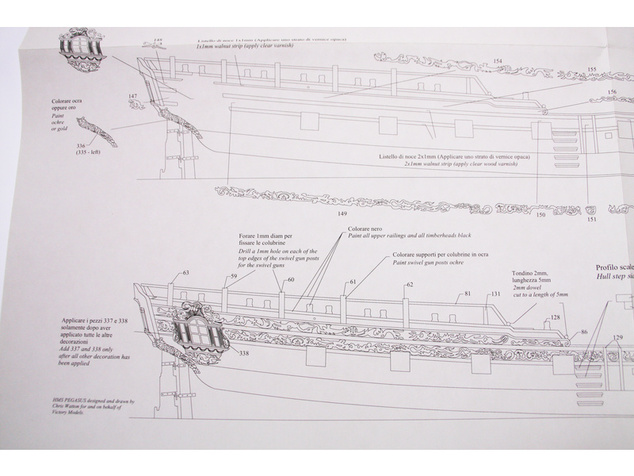 148
Listello di noce 1x1mm (Applicare uno strato di vernice opaca)
1x1mm walnut strip (apply clear varnish)
154
155
156
147
Colorare ocra
oppure oro
Paint
ochre
or gold
336
(335 - left)
Listello di noce 2x1mm (Applicare uno strato di vernice opaca)
2x1mm walnut strip (apply clear wood varnish)
149
150
151
Forare 1mm diam per
fissare le colubrine
Drill a 1mm hole on each of the
top edges of the swivel gun posts
for the swivel guns
Colorare nero
Paint all upper railings and all timberheads black
Colorare supporti per colubrine in ocra
Paint swivel gun posts ochre
Tondino 2mm,
lunghezza 5mm
2mm dowel
cut to a length of 5mm
Profilo scale
Hull step
63
59
60
61
62
81
131
128
86
129
Applicare i pezzi 337 e 338
solamente dopo aver
applicato tutte le altre
decorazioni
Add 337 and 338 only
after all other decoration has
been applied
338
HMS PEGASUS designed and drawn by
Chris Watton for and on behalf of
Victory Models.